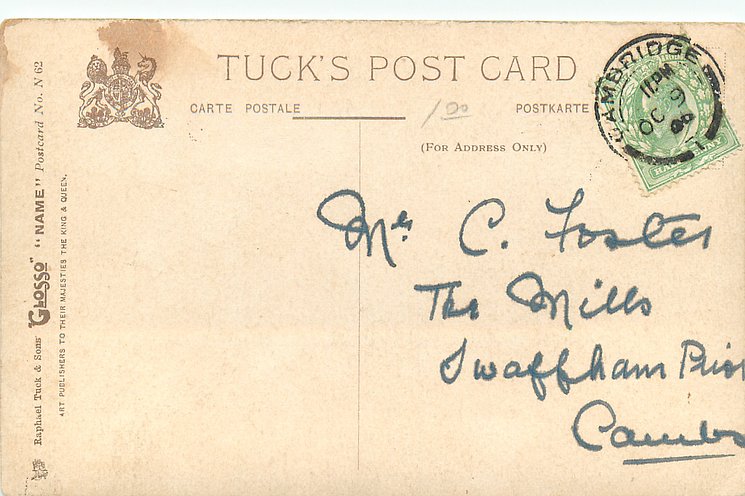 TUCK'S POST CARD
CARTE POSTALE
POSTKARTE
1.00
(FOR ADDRESS ONLY)
CAMBRIDGE
11 PM
OC 9
09
1
HALFPENNY
Mrs C. Foster
The Mills
Swaffham Prior
Cambs
Raphael Tuck & Sons' "GLOSSO" "NAME" Postcard No. N 62
ART PUBLISHERS TO THEIR MAJESTIES THE KING & QUEEN.